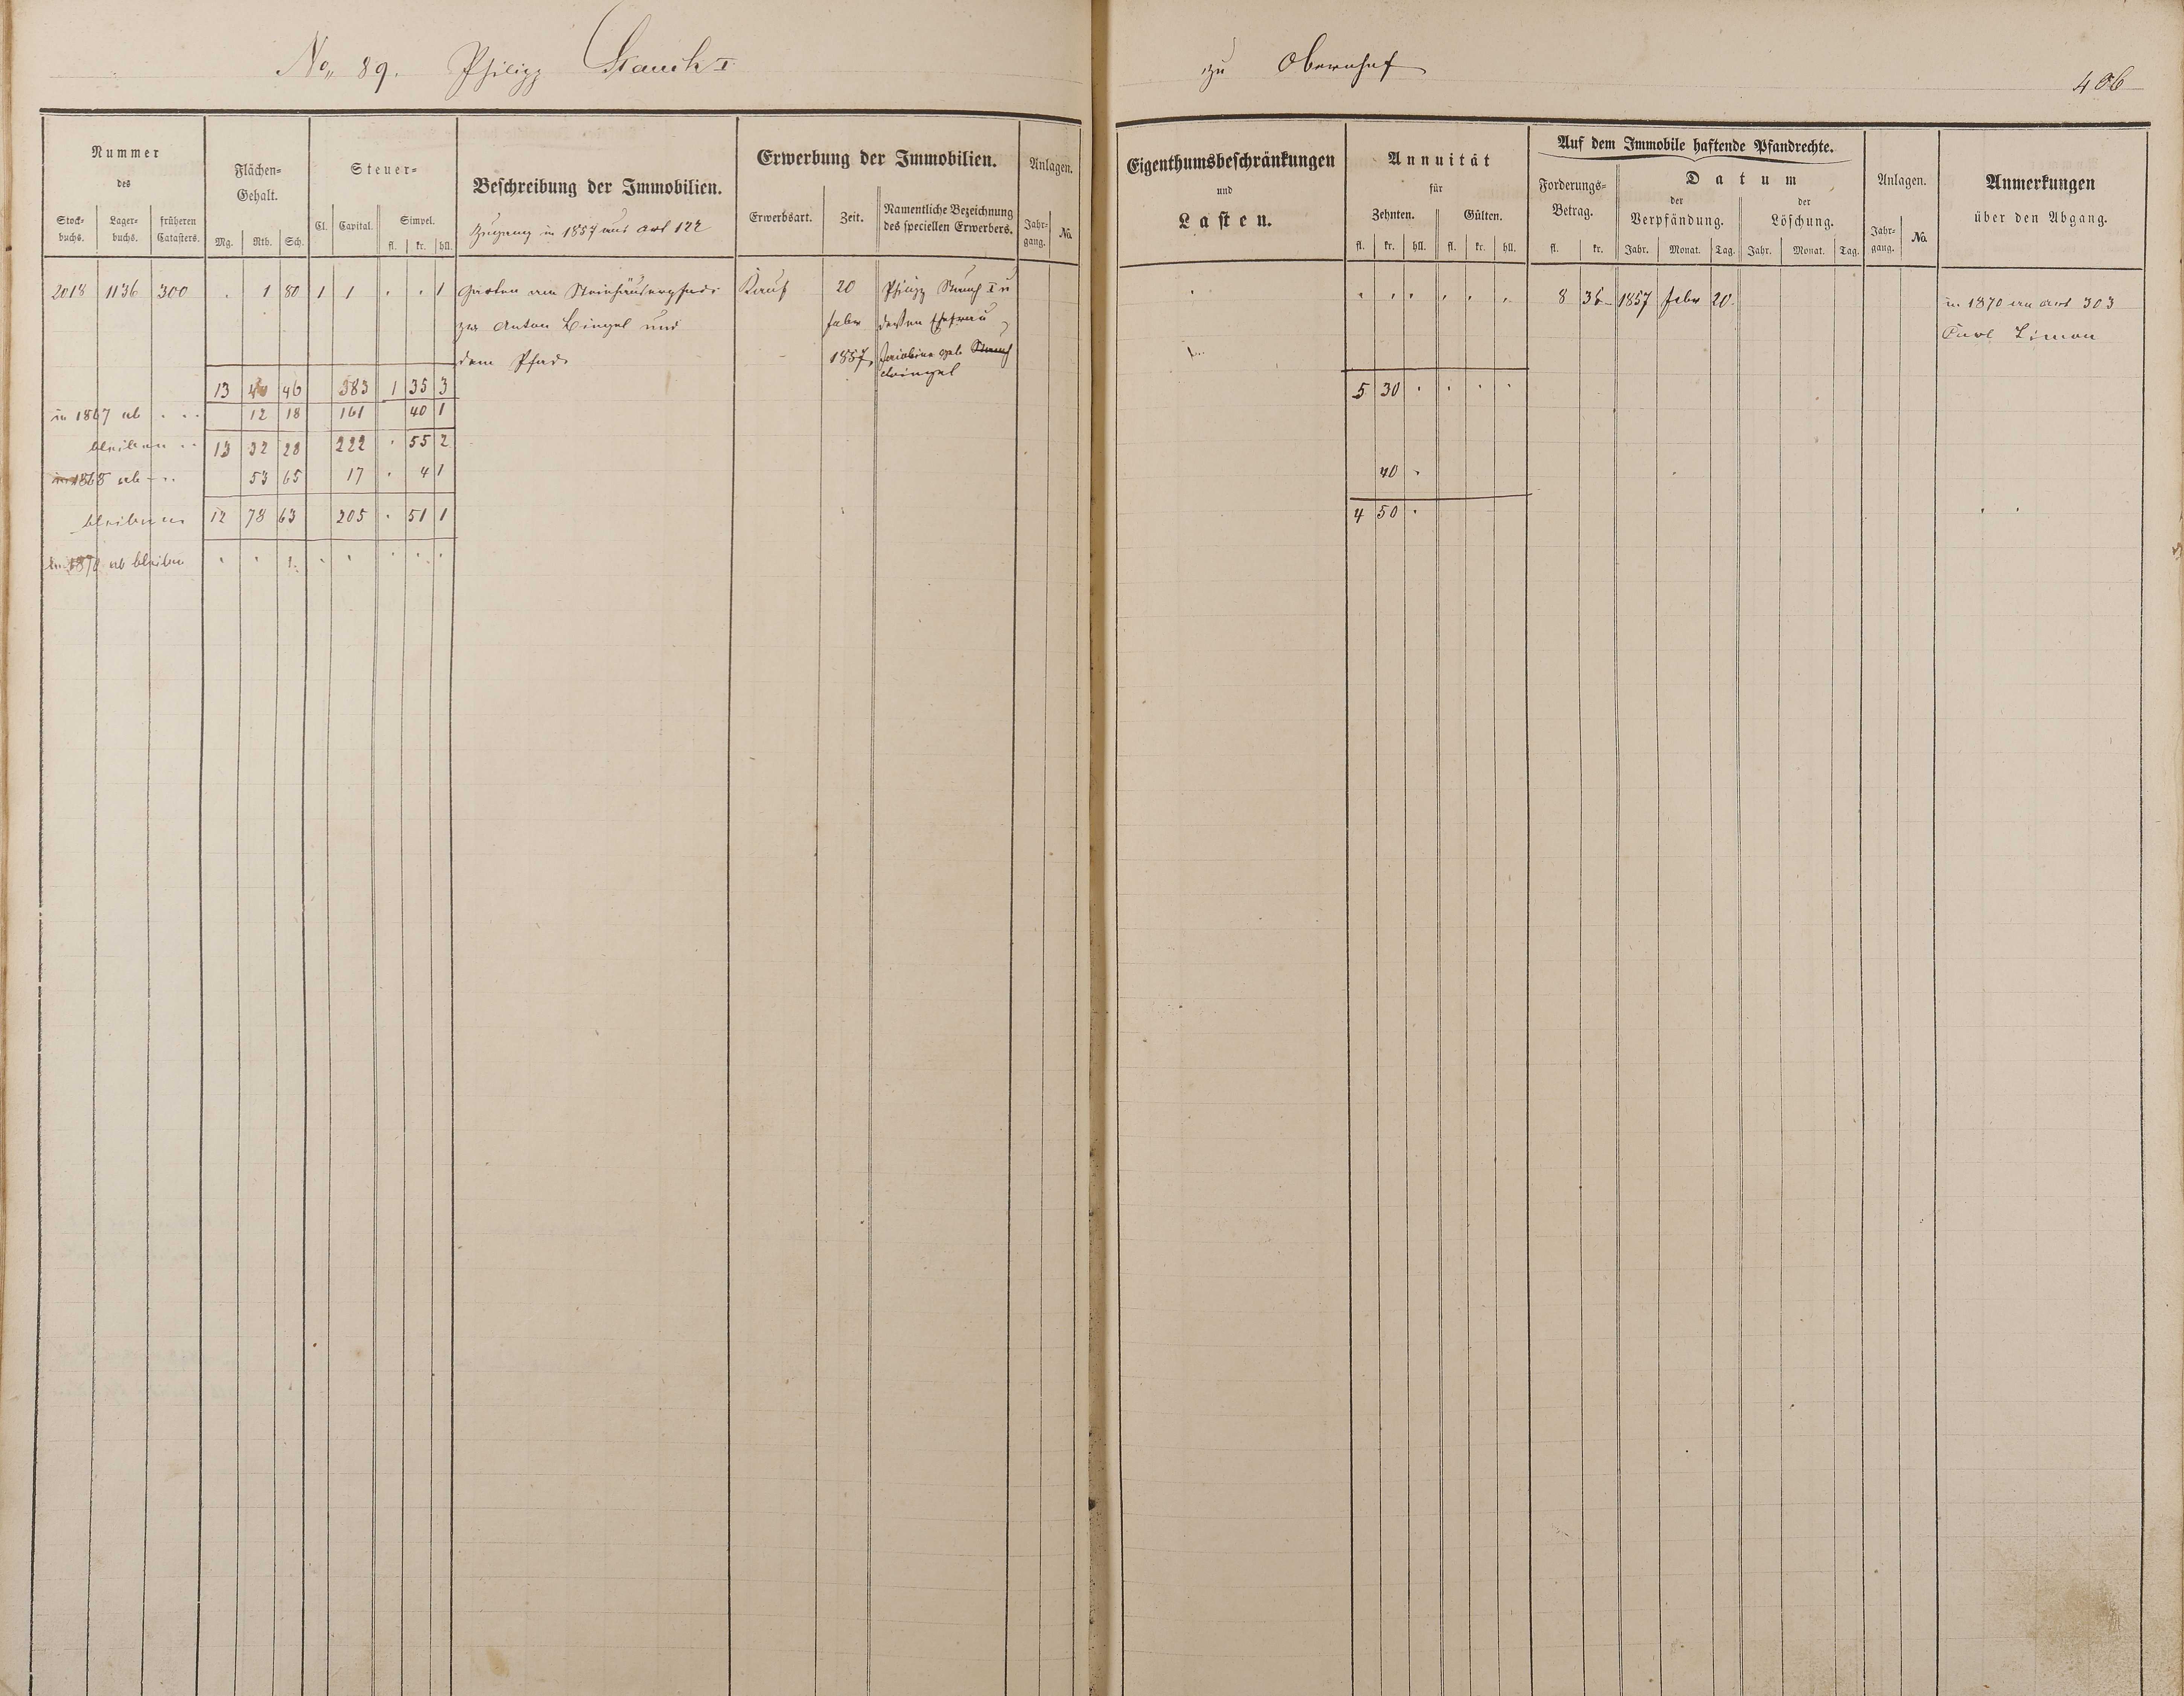 No 89. Philipp Stauch I
zu Obernhof
406
Nummer
des
Stock-
buchs.
Lager-
buchs.
früheren
Catasters.
Flächen-
Gehalt.
Mg. Rth. Sch.
Steuer-
Cl. Capital. Simpel.
fl. kr. hll.
Beschreibung der Immobilien.
Zugang in 1857 aus Art 122
Erwerbung der Immobilien.
Erwerbsart. Zeit.
Namentliche Bezeichnung
des speciellen Erwerbers.
Anlagen.
Jahr-
gang.
No.
Eigenthumsbeschränkungen
und
Lasten.
Annuität
für
Zehnten. Gülten.
fl. kr. hll. fl. kr. hll.
Auf dem Immobile haftende Pfandrechte.
Forderungs-
Betrag.
fl. kr.
Datum
der
Verpfändung.
der
Löschung.
Jahr. Monat. Tag. Jahr. Monat. Tag.
Anlagen.
Jahr-
gang.
No.
Anmerkungen
über den Abgang.
2018 1136 300 . 1 80 1 1 . . 1 Garten am Steinhäuserpfade Kauf 20 Philipp Stauch I u 8 36 1857 Febr 20. in 1870 an Art 303
zw Anton Bingel und Febr dessen Ehefrau Carl Limon
dem Pfade 1857, Jacobine geb Stauch
Bingel
13 46 383 1 35 3 5 30 . . . .
in 1867 ab . . . 12 18 161 40 1
bleiben . . 13 32 28 222 . 55 2
in 1868 ab - . . 53 65 17 . 4 1 40 .
bleiben 12 78 63 205 . 51 1 4 50 .
in 1870 ab bleiben . . . . . . . .